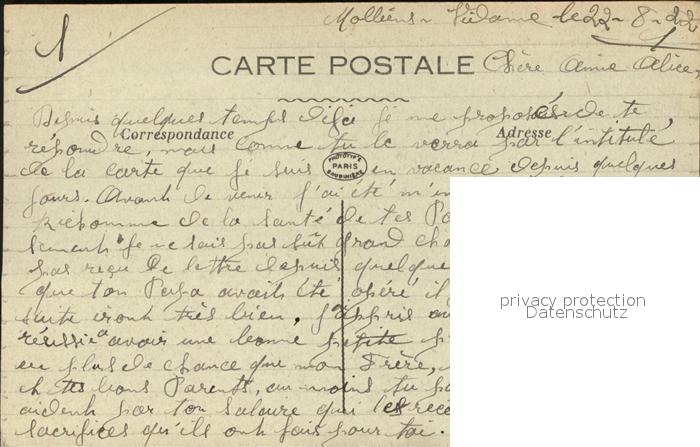 Molliens-Vidame le 22-8-22
1
CARTE POSTALE Chère Amie Alice,
Depuis quelques temps déjà je me proposais de te
Correspondance Adresse
répondre, mais comme tu le verra par l'intitulé
PHOTOTYPIE PARIS BAUDINIÈRE
de la carte que je suis en vacance depuis quelques
jours. Avant de venir j'ai été m'in
de la santé de tes Pa
sement je ne sais pas grand cho
pas reçu de lettre depuis quelque
que ton Papa avait été opéré il
suite iront très bien, j'appris au
réussie a avoir une bonne petite p
en plus de chance que mon Frère,
tes bons Parents, au moins tu pa
aident par ton salaire qui les réco
sacrifices qu'ils ont fais pour toi.
privacy protection
Datenschutz